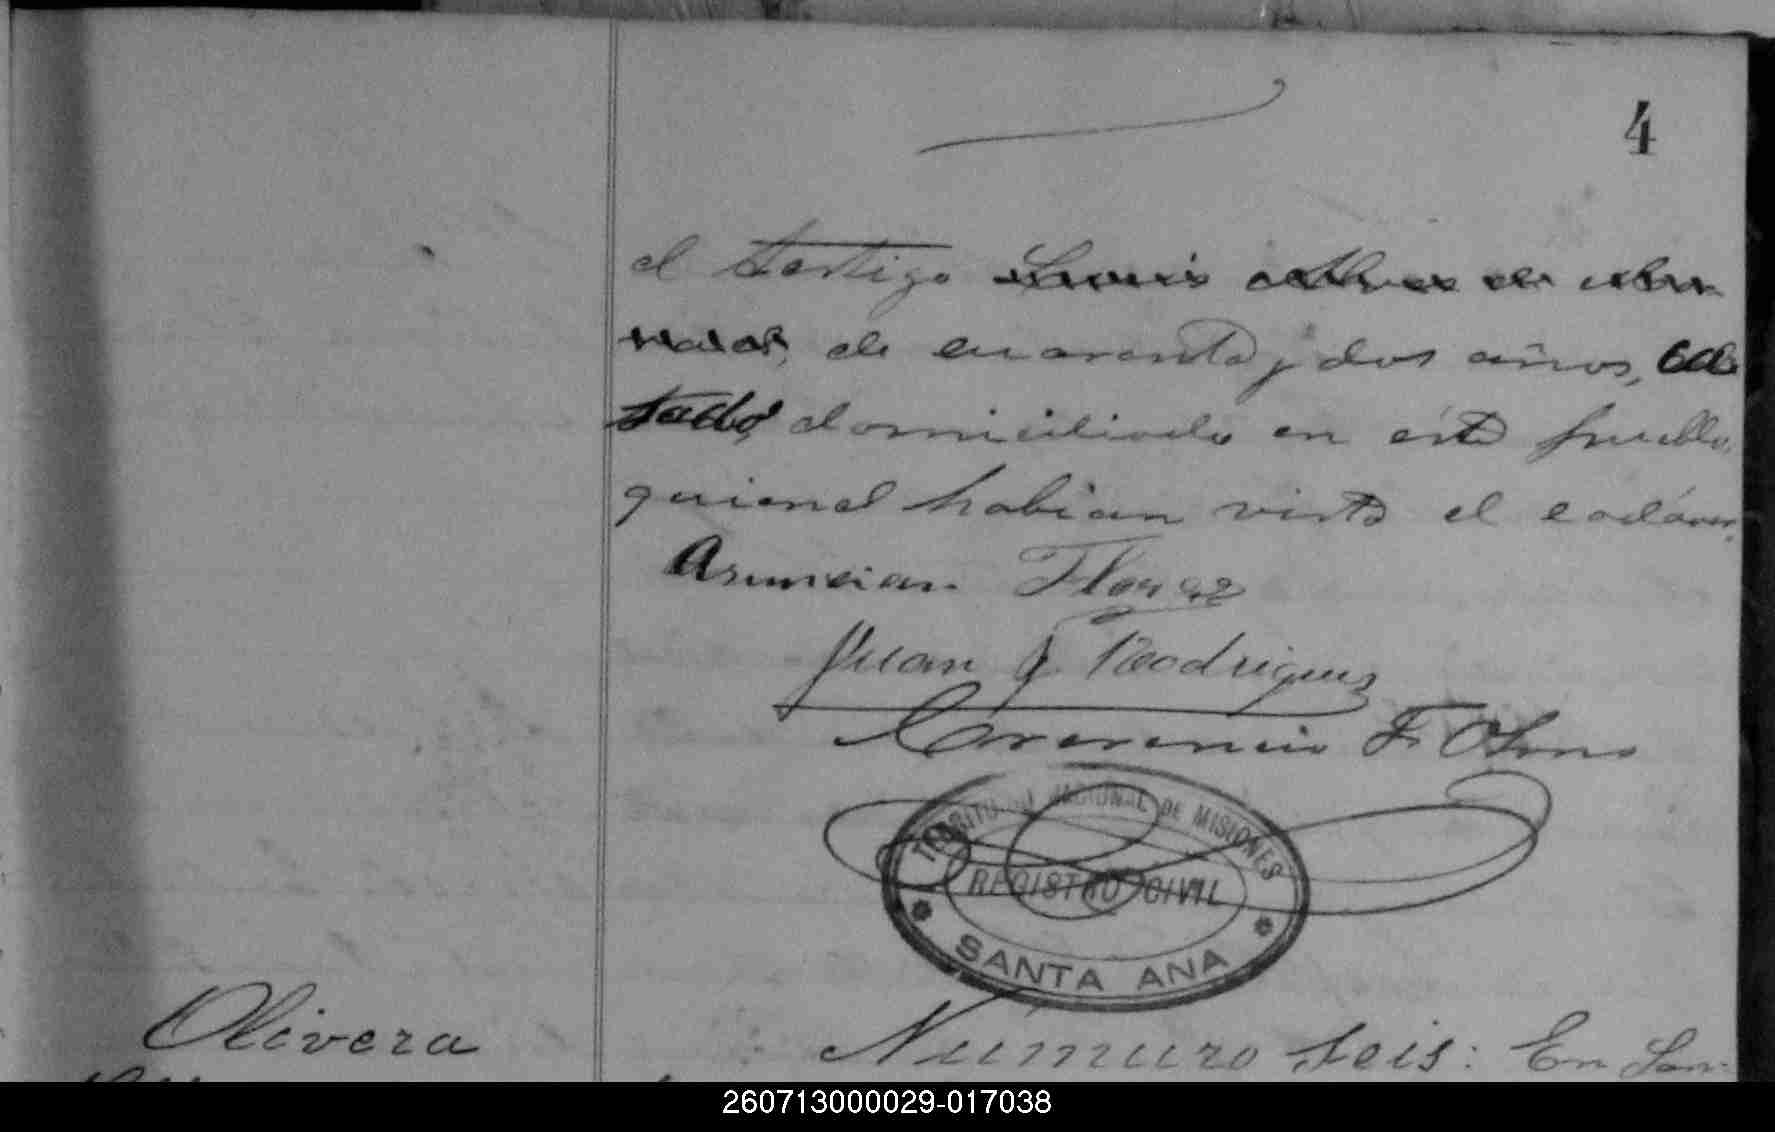 4
el testigo
de cuarenta y dos años,
domiciliado en éste pueblo,
quienes habian visto el cadáver.
Asuncion Florez
Juan J. Rodriguez
F. Olmo
TERRITORIO NACIONAL DE MISIONES
REGISTRO CIVIL
SANTA ANA
Olivera
Númuro seis: En San-
260713000029-017038